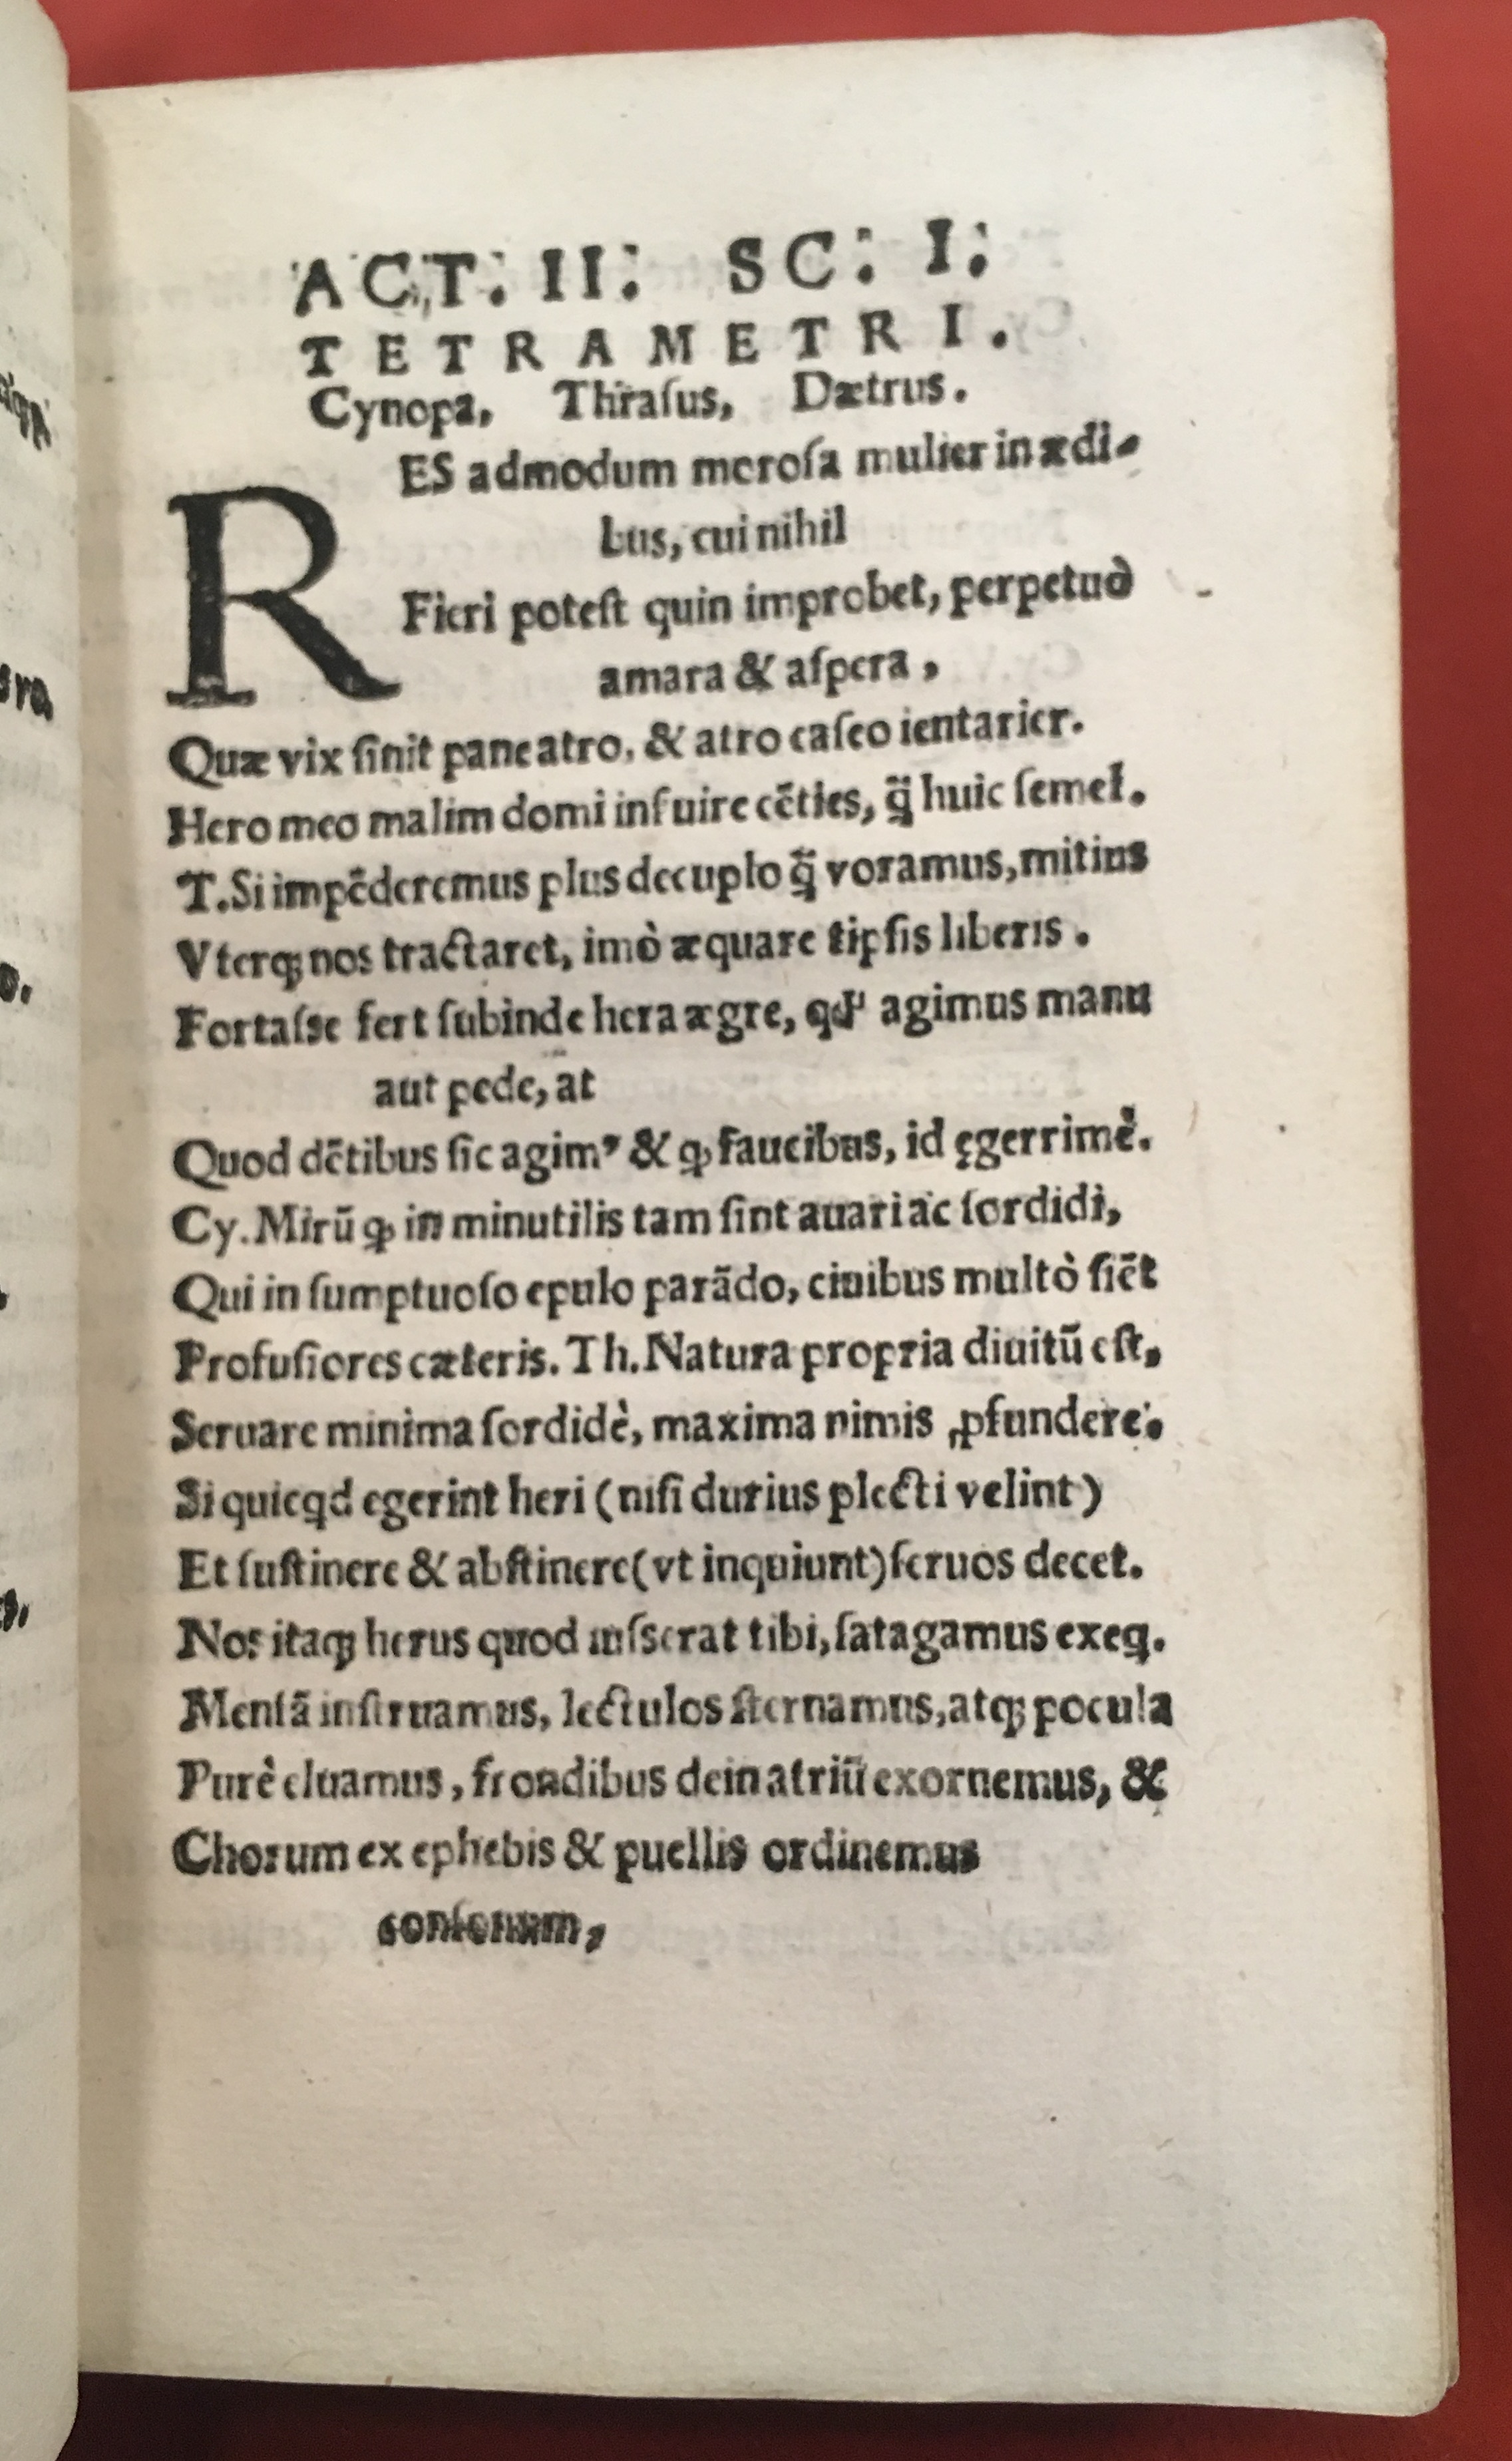 ACT: II: SC: I:
TETRAMETRI.
Cynopa, Thraſus, Dætrus.
RES admodum moroſa mulier in ædi-
bus, cui nihil
Fieri poteſt quin improbet, perpetuò
amara & aſpera,
Quæ vix ſinit pane atro, & atro caſeo ientarier.
Hero meo malim domi inſuire cẽties, q̃ huic ſemel.
T. Si impẽderemus plus decuplo q̃ voramus, mitius
Vterq; nos tractaret, imò æquare t ipſis liberis.
Fortaſse fert ſubinde hera ægre, qđ agimus manu
aut pede, at
Quod dẽtibus ſic agimꝰ & ꝙ faucibus, id ęgerrimè.
Cy. Mirũ ꝙ in minutilis tam ſint auari ac ſordidi,
Qui in ſumptuoſo epulo parãdo, ciuibus multò ſiẽt
Profuſiores cæteris. Th. Natura propria diuitũ eſt,
Seruare minima ſordidè, maxima nimis ꝓfundere.
Si quicꝗd egerint heri (niſi durius plecti velint)
Et ſuſtinere & abſtinere (vt inquiunt) ſeruos decet.
Nos itaq; herus quod iuſserat tibi, ſatagamus exeꝗ.
Menſã inſtruamus, lectulos ſternamus, atq; pocula
Purè eluamus, frondibus dein atriũ exornemus, &
Chorum ex ephebis & puellis ordinemus
conſonum,